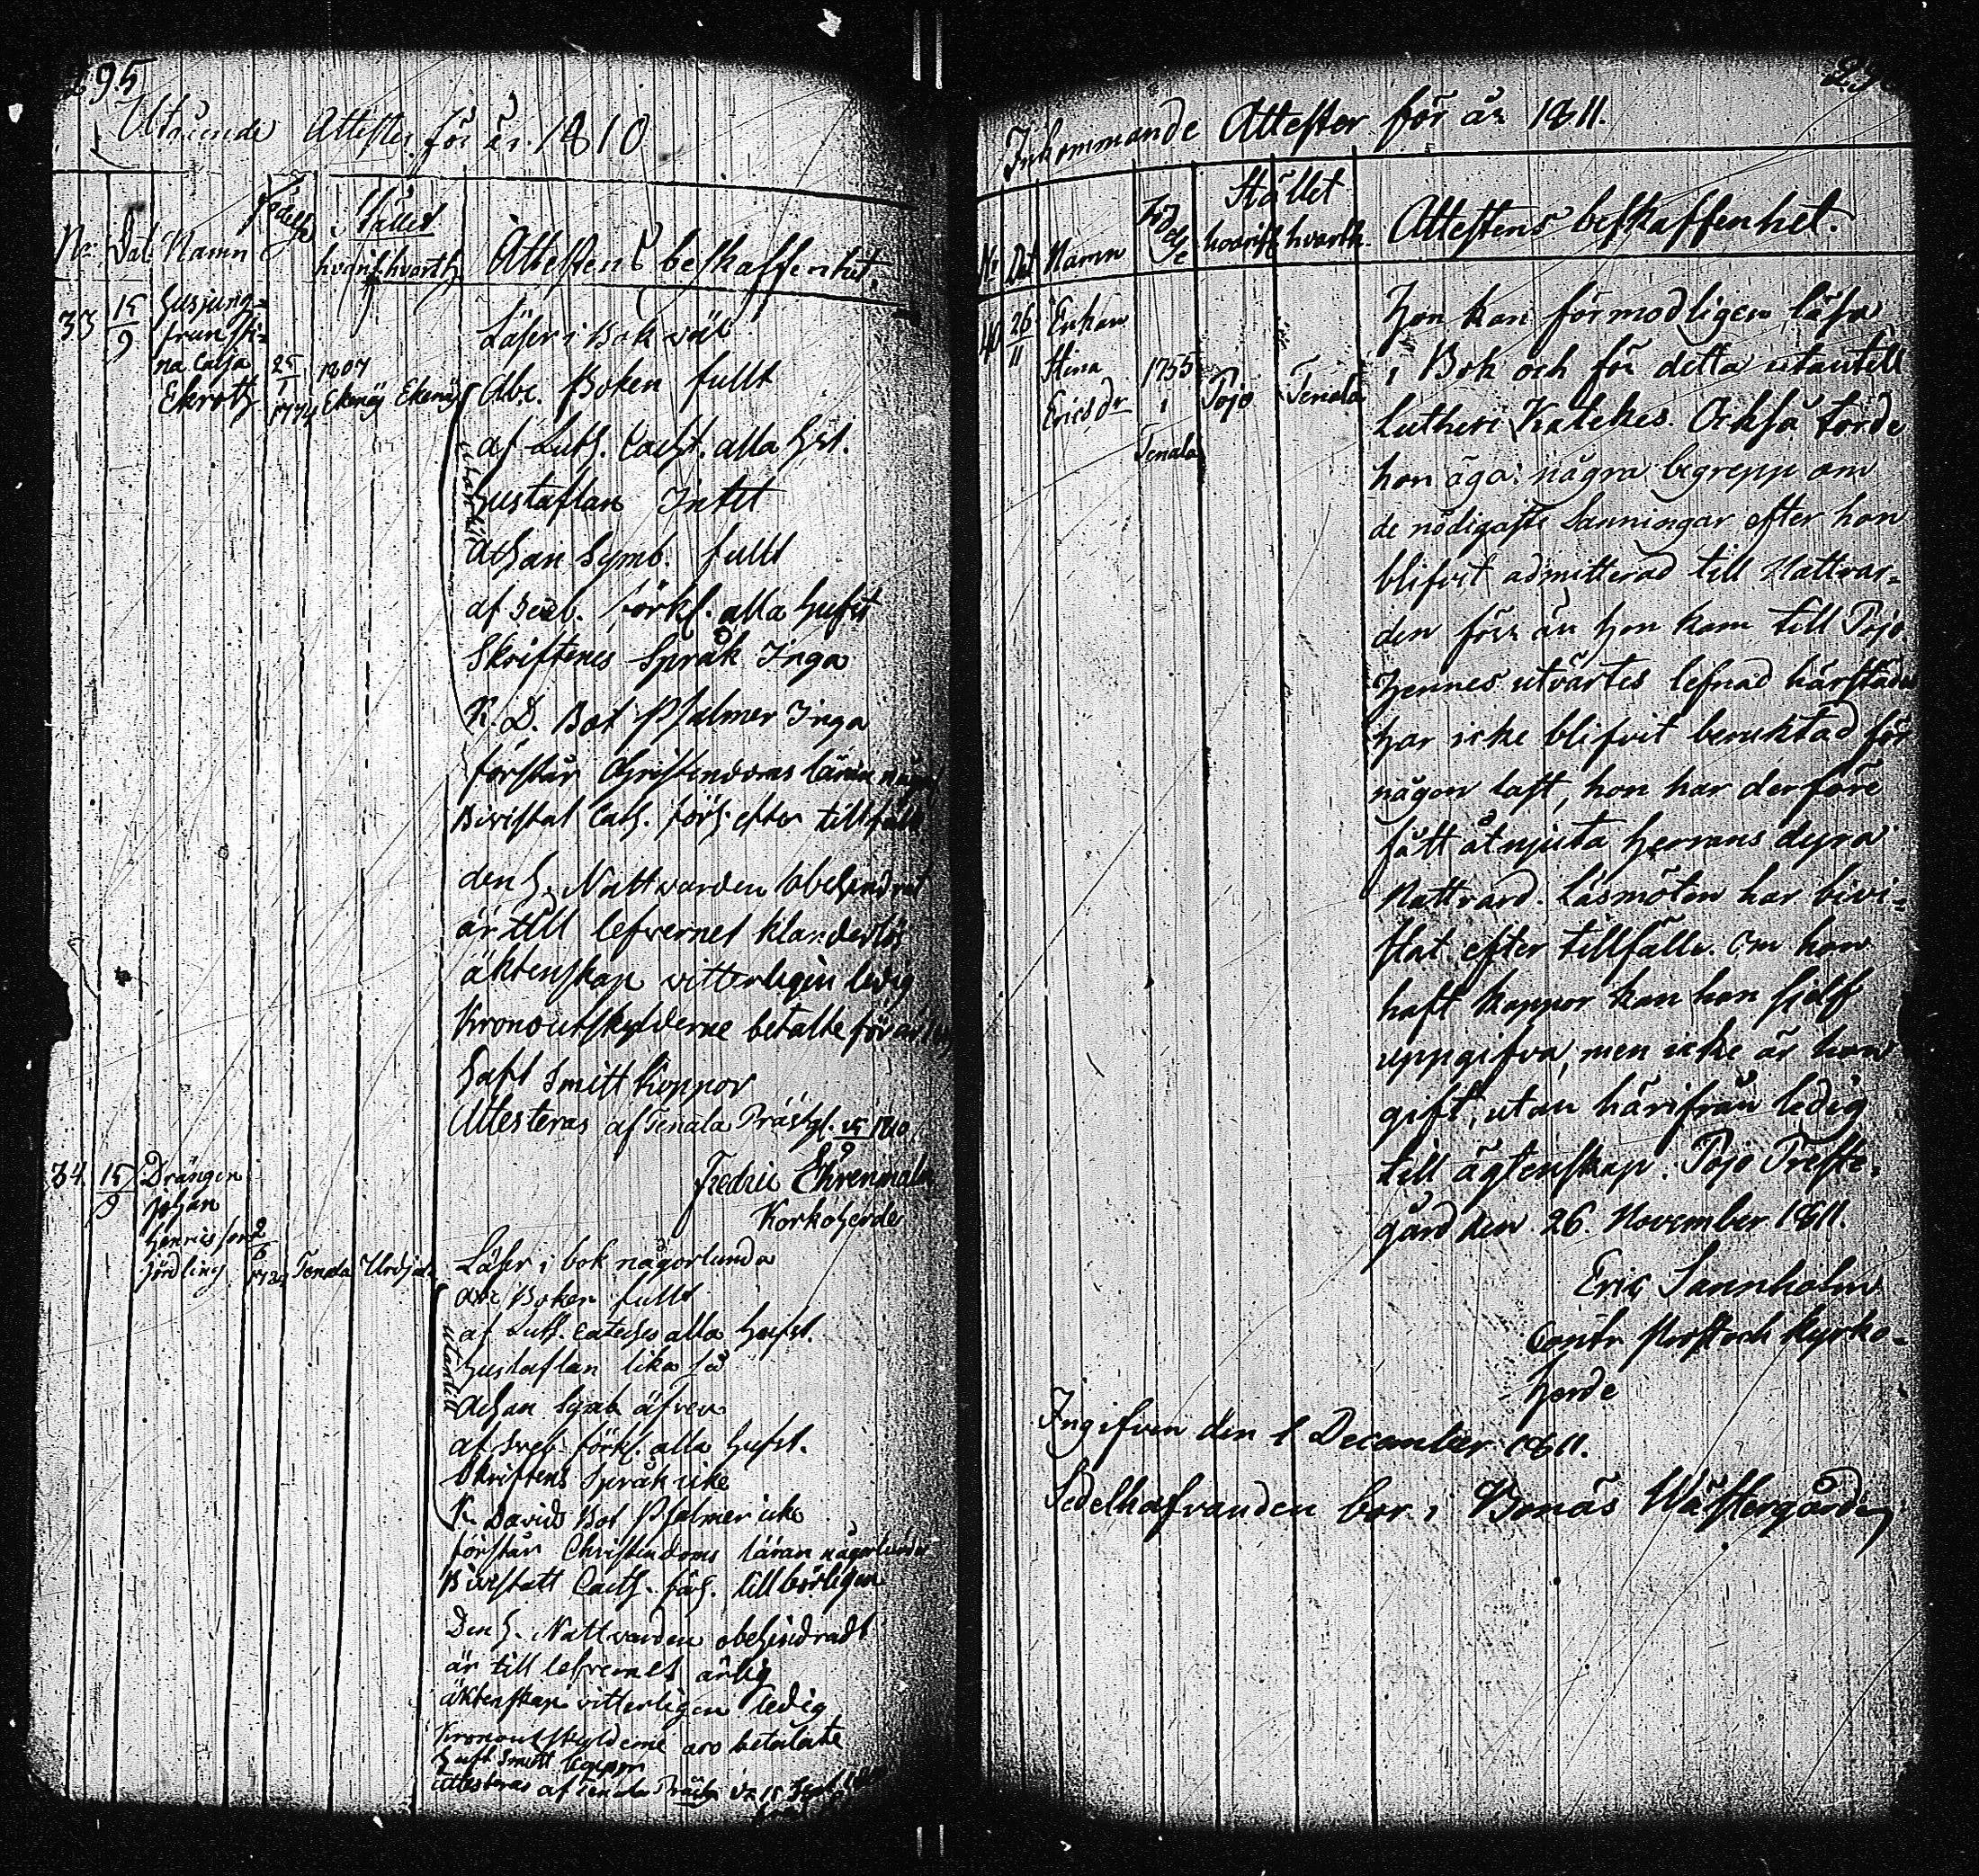 295
Utgående Attester för år 1810
No Dat Namn Födelse Stället
hvarif. hvarth. Attestens beskaffenhet.
33 15/9 Husjung=
frun Sti=
na Caisa
Ekroth 25/1 1774 1807 Ekenäs Ekenäs
Läser i Bok väl
Abc. Boken fullt
af Luth. Cach. alla Hst.
Hustaflan Intet
Athan Symb. fullt
af Sveb. förkl. alla Hufst
Skriftenes Språk Inga
K. D. Bot Psalmer Inga
utantill
förstår Christendoms läran någor
Bivistat Cath. förh. efter tillfälle
den H. Nattvarden obehindrat
är till lefvernet klanderlös
äktenskap vitterligen ledig
Kronoutskylderne betalte för
haft Smitt Koppor
Attesteras af Tenala Prästg. 15 1810
Fredric Ehrenmalm
Korkoherde
34 15/9 Drängen
Johan
Henricsson
2/6
Tenala
Läser i bok någorlunda
Abc Boken fullt
af Luth. Cateches alla Hufst.
Hustaflan lika så
Athan Symb äfven
af Sveb förkl. alla Hufst.
Skriftens Språk icke
K Davids Bot Psalmer icke
utantill
förstår Christendoms läran någorlunda
Bivistatt Cath. förh. tillbörligen
Den H. Nattvarden obehindradt
är till lefvernet ärlig
äktenskap vitterligen ledig
Kronoutskylderne äro betalate
haft Smitt koppor
Attesteras af Tenala Prästg. 15 Sept
Inkommande Attester för år 1811.
No Dat Namn Födelse Stället
hvarifr. hvarth. Attestens beskaffenhet.
26/11 Enkan
Stina
Ericsdr
1755
i
Tenala
Pojo Tenala
Hon kan förmodligen läsa
i Bok och för detta utantill
Lutheri Katekes. Också torde
hon äga några begrepp om
de nödigaste Sanningar efter hon
blifvit admitterad till Nattvar=
den förr än hon kom till Pojo
Hennes utvärtes lefnad härstädes
har icke blifvit beruktad för
någon last, hon har derföre
fått åtnjuta Herrans dyra
Nattvard. Läsmöten har bivi=
stat efter tillfälle. Om hon
haft koppor kan hon sielf
uppgifva, men icke är hon
gift, utan härifrån ledig
till ägtenskap. Pojo Preste=
gård den 26. November 1811.
Eric Sannholm
Contr Prost och Kyrko=
Herde
Ingifven den 1 December 1811.
Sedelhafvanden bor i Bonäs Wästergården